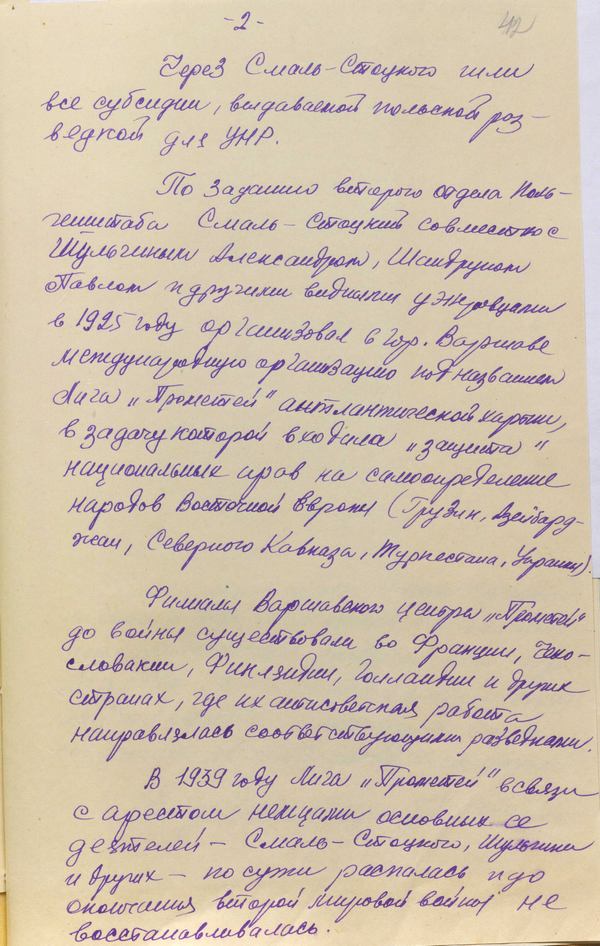 -2-
42
Через Смаль-Стоцкого шли
все субсидии, выдаваемой польской раз-
ведкой для УНР.
По заданию второго отдела Поль-
генштаба Смаль-Стоцкий совместно с
Шульгиным Александром, Шандруком
Павлом и другими видными уэнровцами
в 1925 году организовал в гор. Варшаве
международную организацию под названием
Лига „Прометей" антлантической хартии,
в задачу которой входила „защита"
национальных прав на самоопределение
народов Восточной Европы (Грузии, Азейбард-
жан, Северного Кавказа, Туркестана, Украины).
Филиалы Варшавского центра „Прометей"
до войны существовали во Франции, Чехо-
словакии, Финлядии, Голландии и других
странах, где их антисоветская работа
направлялась соответствующими разведками.
В 1939 году Лига „Прометей" в связи
с арестом немцами основных ее
деятелей - Смаль-Стоцкого, Шульгина
и других - по сужи распалась и до
окончания второй мировой войны не
восстанавливалась.